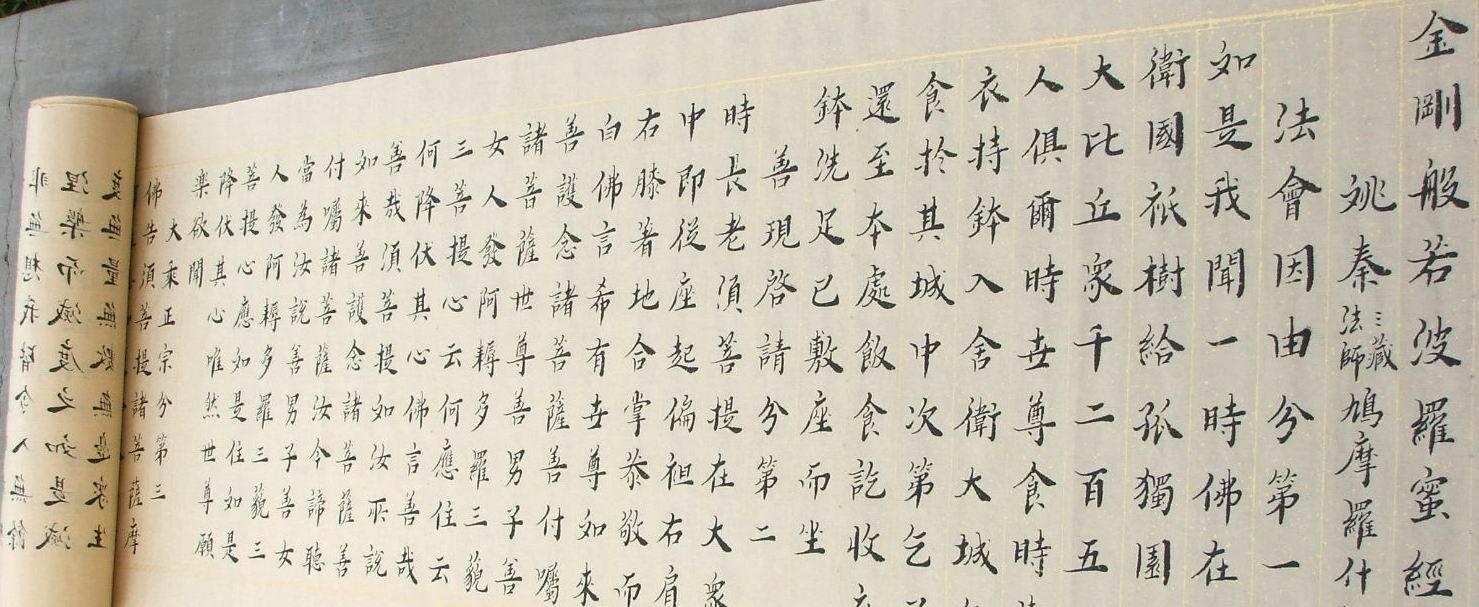 金剛般若波羅蜜經
姚秦三藏法師鳩摩羅什
法會因由分第一
如是我聞一時佛在
衛國祇樹給孤獨園
大比丘衆千二百五
人俱爾時世尊食時
衣持鉢入舍衛大城
食於其城中次第乞
還至本處飯食訖收
鉢洗足已敷座而坐
善現啓請分第二
時長老須菩提在大衆
中即從座起偏袒右肩
右膝著地合掌恭敬而
白佛言希有世尊如來
善護念諸菩薩善付囑
諸菩薩世尊善男子善
女人發阿耨多羅三藐
三菩提心云何應住云
何降伏其心佛言善哉
善哉須菩提如汝所說
如來善護念諸菩薩善
付囑諸菩薩汝今諦聽
當為汝說善男子善女
人發阿耨多羅三藐三
菩提心應如是住如是
降伏其心唯然世尊願
樂欲聞
大乘正宗分第三
佛告須菩提諸菩薩摩
度無量無數無邊眾生
涅槃而滅度之如是滅
非無想我皆令入無餘